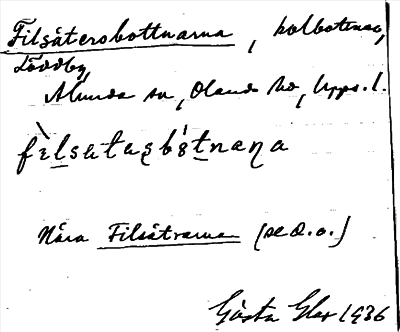 Filsätersbottnarna, kolbottnar,
Löddby,
Alunda sn, Olands hd, Upps. l.
fèlsatasbótnaɳa
Nära Filsätrarna (se d. o.)
Gösta Eles 1936